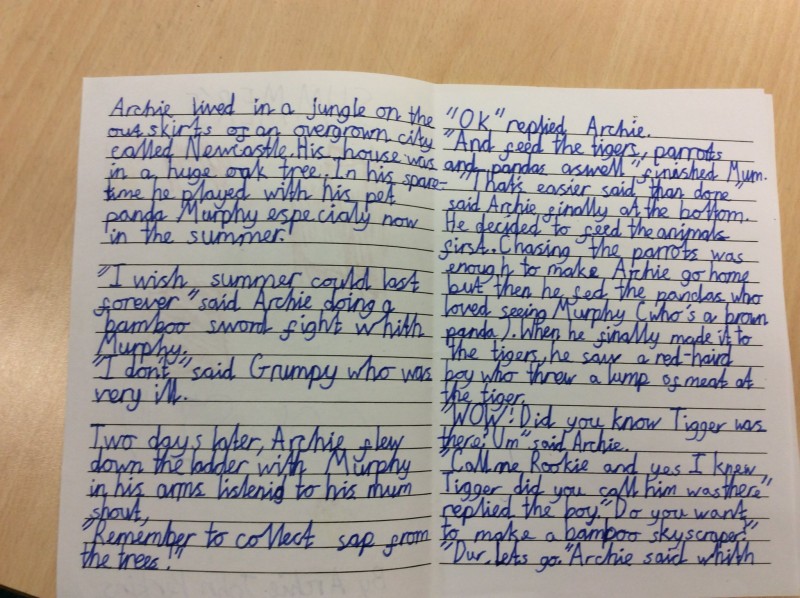 Archie lived in a jungle on the
outskirts of an overgrown city
called Newcastle. His house was
in a huge oak tree. In his spare-
time he played with his pet
panda Murphy especialy now
in the summer.
"I wish summer could last
forever" said Archie doing a
bamboo sword fight whith
Murphy.
"I dont" said Grumpy who was
very ill.
Two days later, Archie flew
down the ladder with Murphy
in his arms listenig to his mum
shout,
"Remember to collect sap from
the trees!"
"OK" replied Archie.
"And feed the tigers, parrots
and pandas aswell" finished Mum.
"That's easier said than done"
said Archie finally at the bottom.
He decided to feed the animals
first. Chasing the parrots was
enough to make Archie go home
but then he fed the pandas who
loved seeing Murphy (who's a brown
panda). When he finally made it to
the tigers, he saw a red-haird
boy who threw a lump of meat at
the tiger.
"WOW! Did you know Tigger was
there? Um" said Archie.
"Call me Rookie and yes I knew
Tigger did you call him was there"
replied the boy. "Do you want
to make a bamboo skyscraper?"
"Dur, lets go." Archie said whith